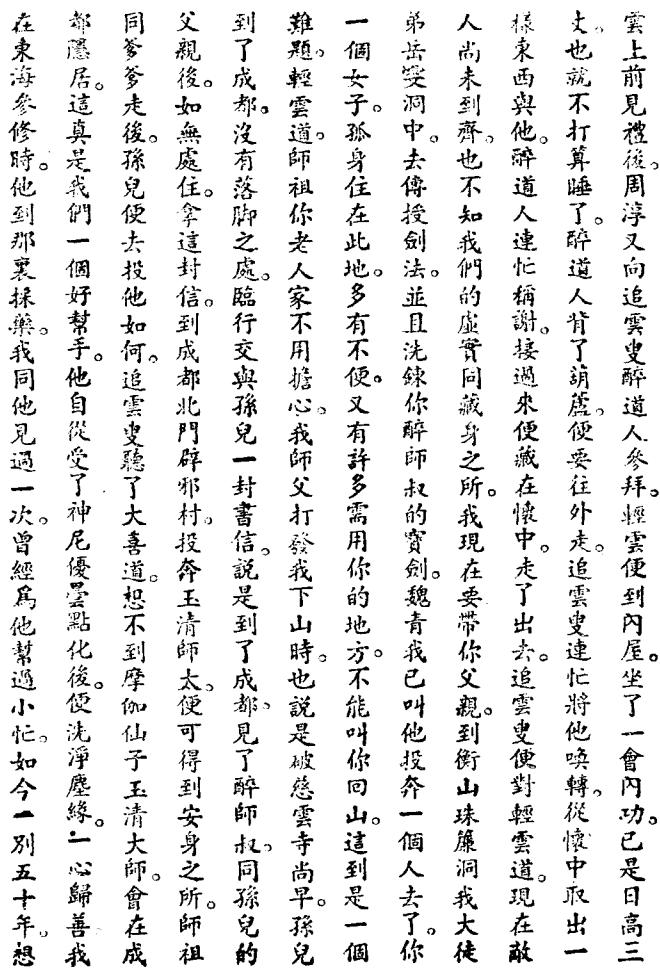 雲上前見禮後。周淳又向追雲叟醉道人參拜。輕雲便到內屋。坐了一會內功。已是日高三
丈。也就不打算睡了。醉道人背了葫蘆。便要往外走。追雲叟連忙將他喚轉。從懷中取出一
樣東西與他。醉道人連忙稱謝。接過來便藏在懷中。走了出去。追雲叟便對輕雲道。現在敵
人尚未到齊。也不知我們的虛實同藏身之所。我現在要帶你父親。到衡山珠簾洞我大徒
弟岳雯洞中。去傳授劍法。並且洗鍊你醉師叔的寶劍。魏青我已叫他投奔一個人去了。你
一個女子。孤身住在此地。多有不便。又有許多需用你的地方。不能叫你回山。這到是一個
難題。輕雲道。師祖你老人家不用擔心。我師父打發我下山時。也說是破慈雲寺尚早。孫兒
到了成都。沒有落脚之處。臨行交與孫兒一封書信。說是到了成都。見了醉師叔。同孫兒的
父親後。如無處住。拿這封信。到成都北門辟邪村。投奔玉清師太。便可得到安身之所。師祖
同爹爹走後。孫兒便去投他如何。追雲叟聽了大喜道。想不到摩伽仙子玉清大師。會在成
都隱居。這真是我們一個好幫手。他自從受了神尼優曇點化後。便洗淨塵緣。一心歸善我
在東海參修時。他到那裏採藥。我同他見過一次。曾經爲他幫過小忙。如今一別五十年。想